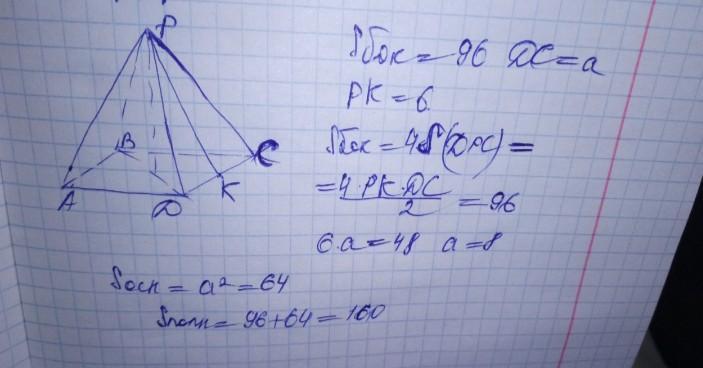 P
B
C
A
D
K
Sбок = 96 DC = a
PK = 6
Sбок = 4S(DPC) =
= 4·PK·DC / 2 = 96
6·a = 48 a = 8
Sосн = a² = 64
Sполн = 96 + 64 = 160